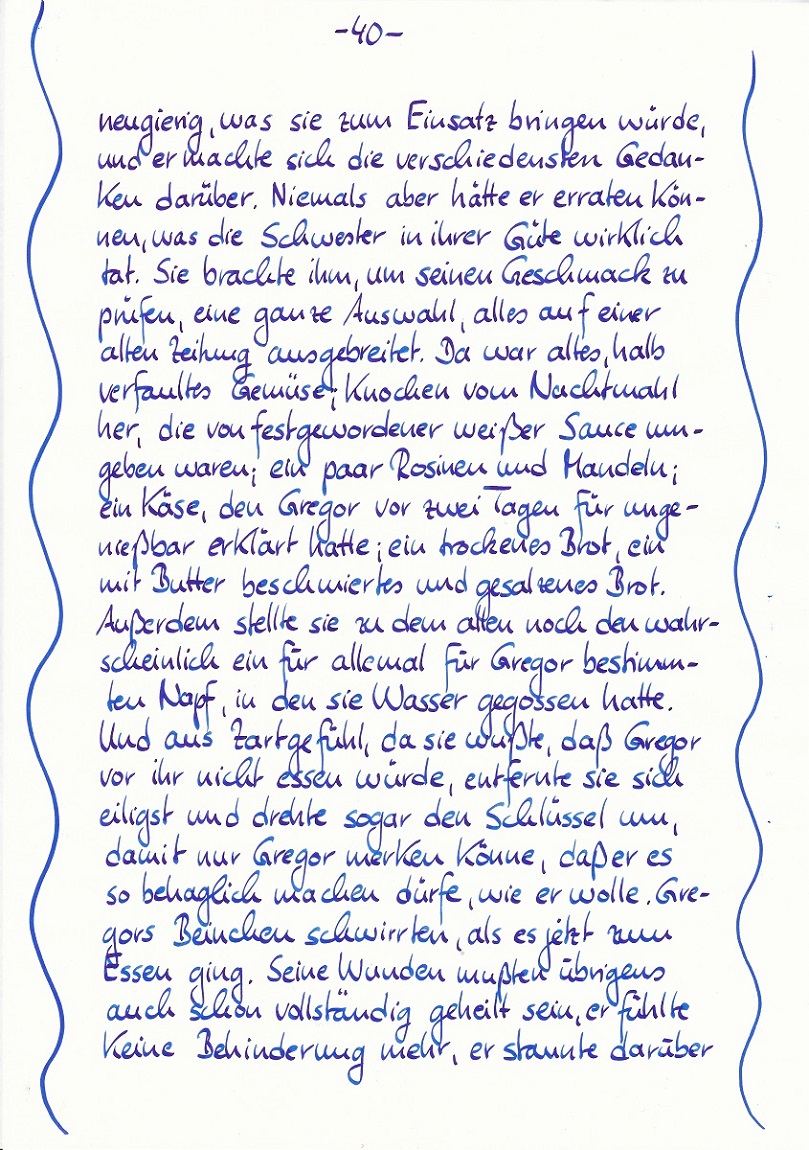 -40-
neugierig, was sie zum Einsatz bringen würde,
und er machte sich die verschiedensten Gedan-
ken darüber. Niemals aber hätte er erraten kön-
nen, was die Schwester in ihrer Güte wirklich
tat. Sie brachte ihm, um seinen Geschmack zu
prüfen, eine ganze Auswahl, alles auf einer
alten Zeitung ausgebreitet. Da war altes, halb
verfaultes Gemüse; Knochen vom Nachtmahl
her, die von festgewordener weißer Sauce um-
geben waren; ein paar Rosinen und Mandeln;
ein Käse, den Gregor vor zwei Tagen für unge-
nießbar erklärt hatte; ein trockenes Brot, ein
mit Butter beschmiertes und gesalzenes Brot.
Außerdem stellte sie zu dem allen noch den wahr-
scheinlich ein für allemal für Gregor bestimm-
ten Napf, in den sie Wasser gegossen hatte.
Und aus Zartgefühl, da sie wußte, daß Gregor
vor ihr nicht essen würde, entfernte sie sich
eiligst und drehte sogar den Schlüssel um,
damit nur Gregor merken könne, daß er es
so behaglich machen dürfe, wie er wolle. Gre-
gors Beinchen schwirrten, als es jetzt zum
Essen ging. Seine Wunden mußten übrigens
auch schon vollständig geheilt sein, er fühlte
keine Behinderung mehr, er staunte darüber